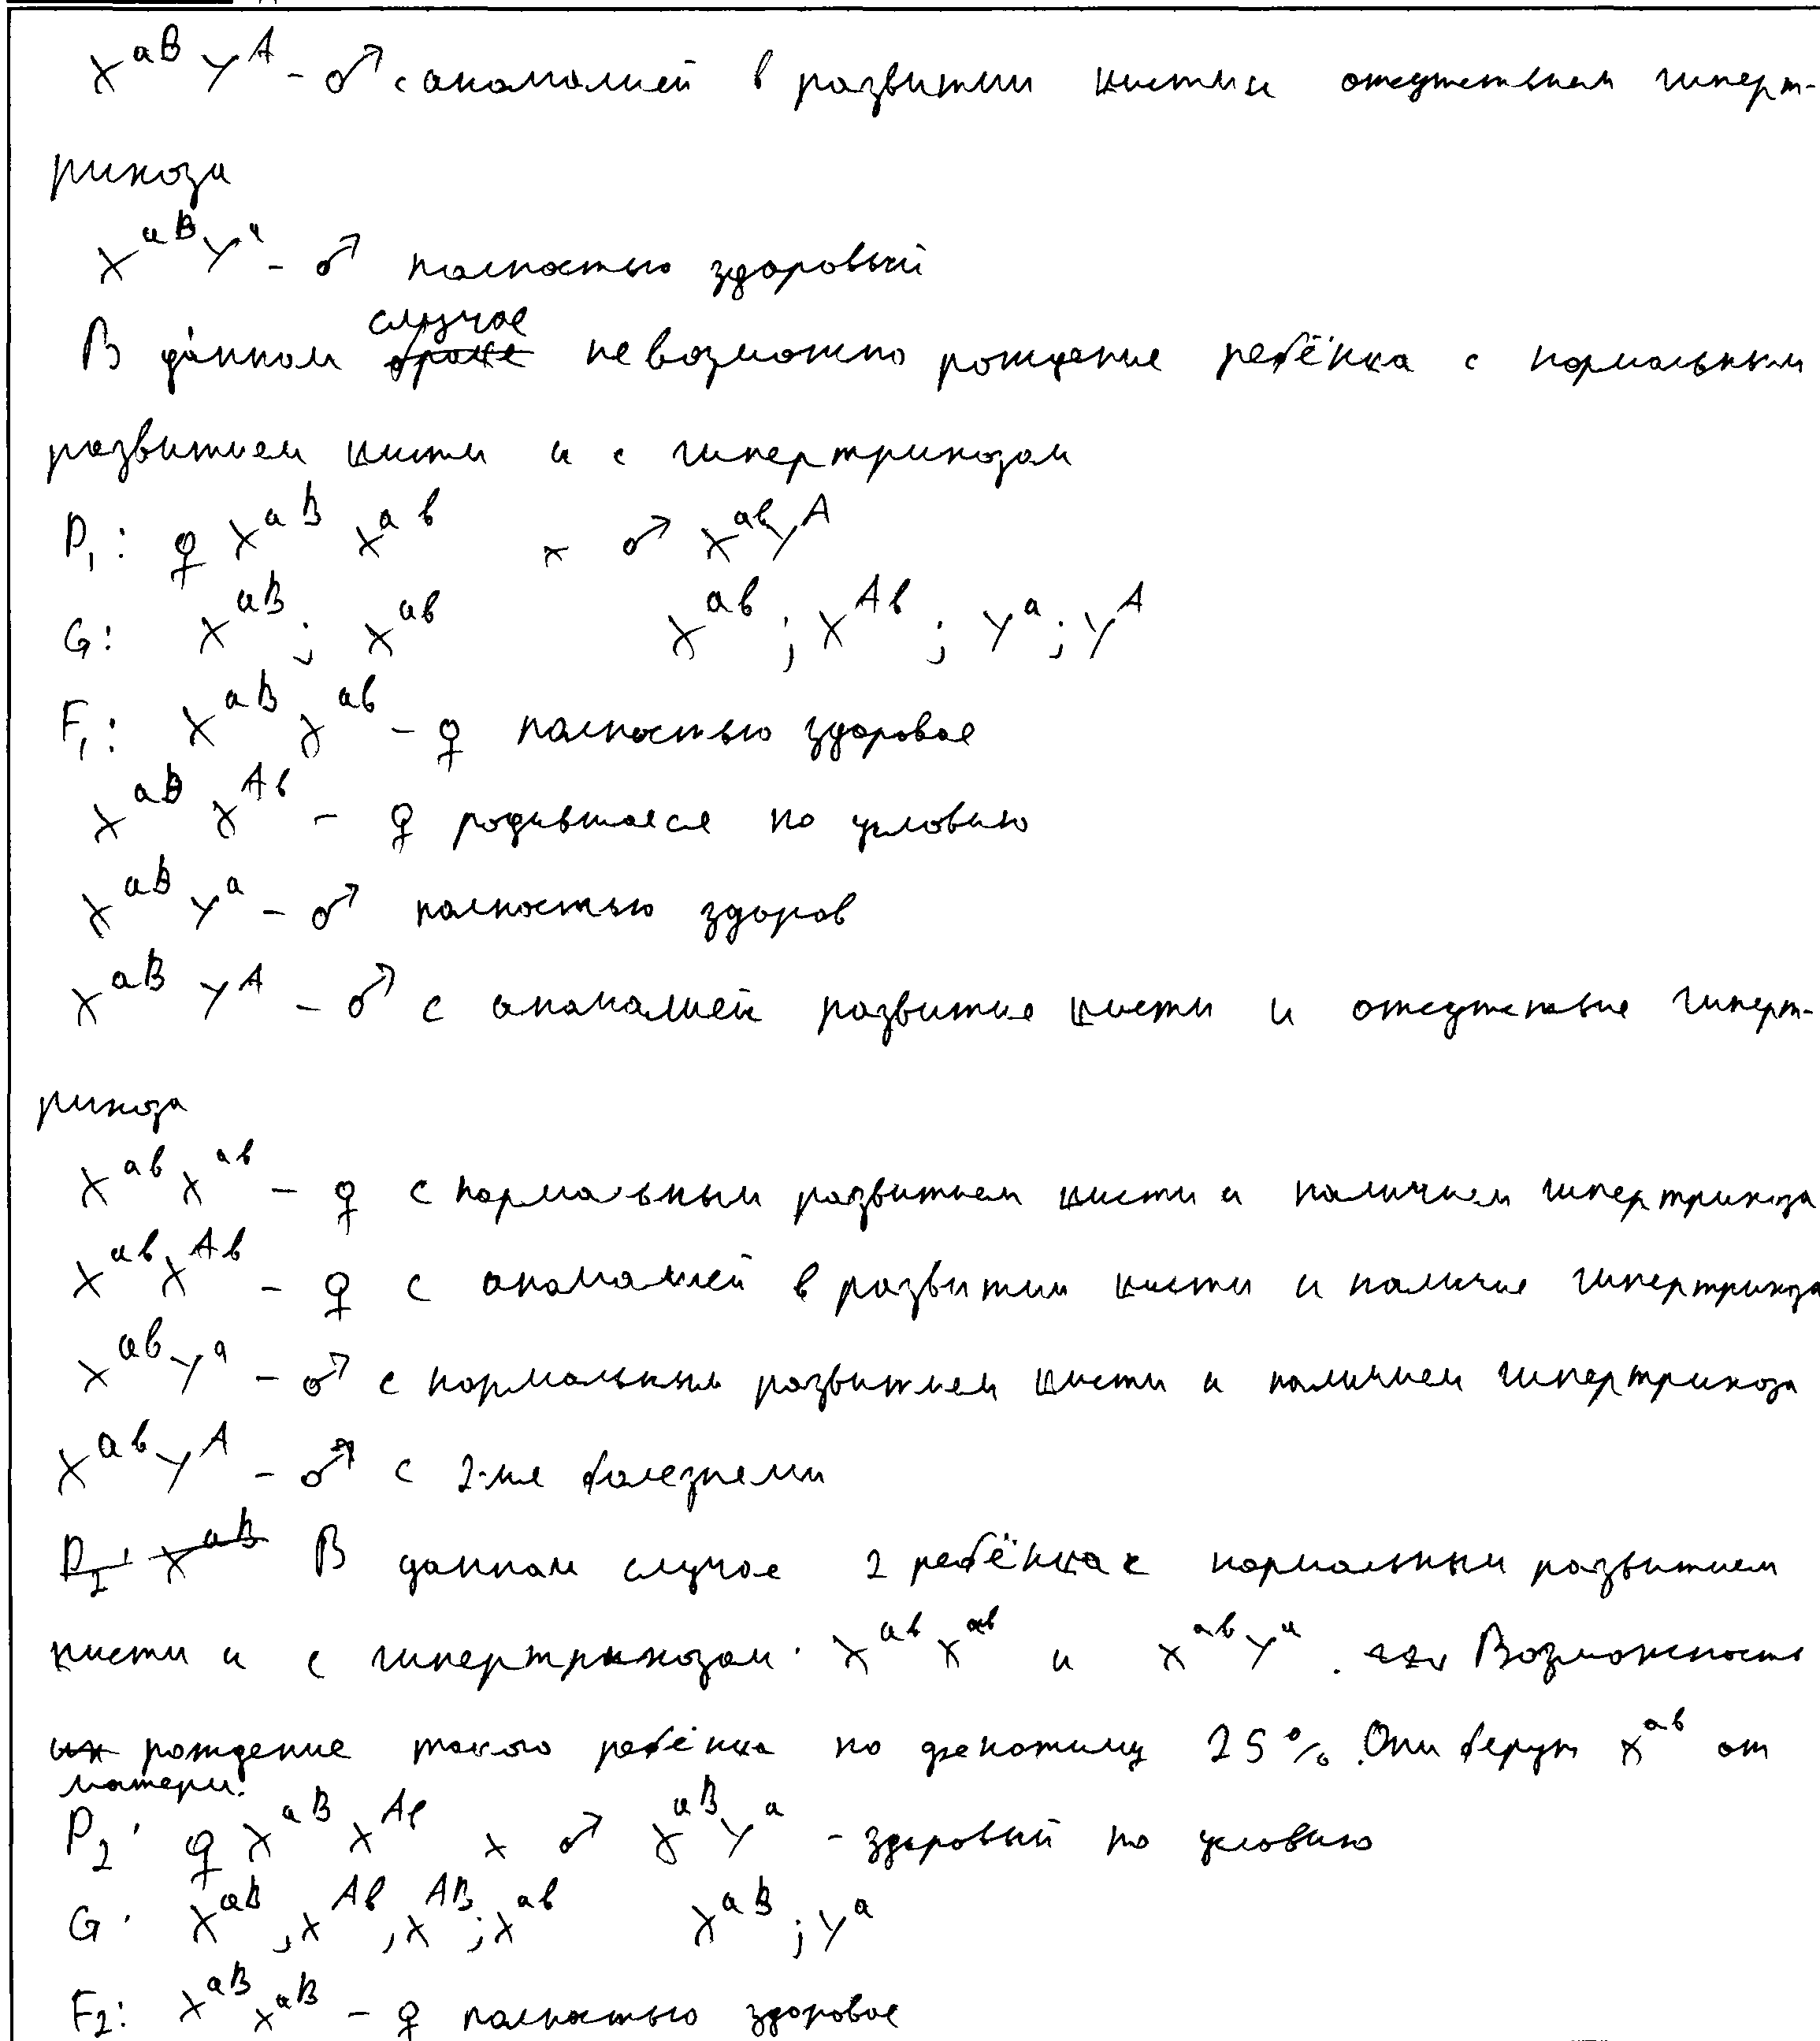 X^aB Y^A - ♂ с аномалией в развитии кисти и отсутствием гиперт-
рихоза
X^aB Y^a - ♂ полностью здоровый
В данном случае невозможно рождение ребёнка с нормальным
развитием кисти и с гипертрихозом
P₁: ♀ X^aB X^ab × ♂ X^ab Y^A
G: X^aB ; X^ab X^ab ; X^Ab ; Y^a ; Y^A
F₁: X^aB X^ab - ♀ полностью здоровая
X^aB X^Ab - ♀ родившаяся по условию
X^aB Y^a - ♂ полностью здоров
X^aB Y^A - ♂ с аномалией развитие кисти и отсутствие гиперт-
рихоза
X^ab X^ab - ♀ с нормальным развитием кисти и наличием гипертрихоза
X^ab X^Ab - ♀ с аномалией в развитии кисти и наличие гипертрихоза
X^ab Y^a - ♂ с нормальным развитием кисти и наличием гипертрихоза
X^ab Y^A - ♂ с 2-мя болезнями
В данном случае 2 ребёнка с нормальным развитием
кисти и с гипертрихозом: X^ab X^ab и X^ab Y^a. Возможность
рождение такого ребёнка по фенотипу 25%. Они берут X^ab от
матери.
P₂: ♀ X^aB X^Ab × ♂ X^aB Y^a - здоровый по условию
G: X^aB, X^Ab, X^AB; X^ab X^aB ; Y^a
F₂: X^aB X^aB - ♀ полностью здоровая